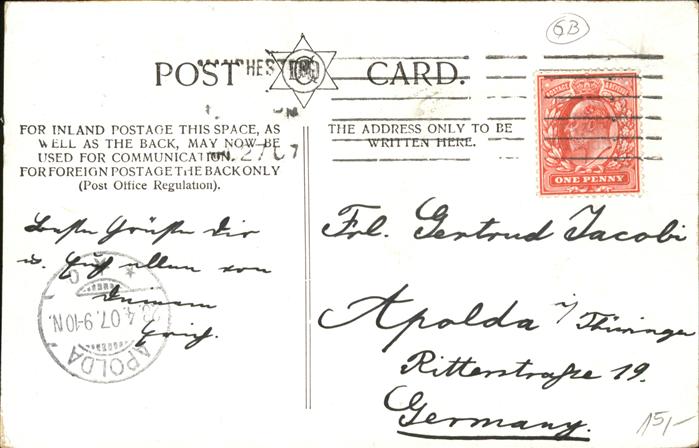 6B
MANCHESTER
POST CARD.
FOR INLAND POSTAGE THIS SPACE, AS
WELL AS THE BACK, MAY NOW BE
USED FOR COMMUNICATION.
FOR FOREIGN POSTAGE THE BACK ONLY
(Post Office Regulation).
THE ADDRESS ONLY TO BE
WRITTEN HERE.
POSTAGE REVENUE
ONE PENNY
Besten Grüße Dir
u. Euch allen von
Deinem
Erich.
APOLDA
.4.07. 9-10 N.
Frl. Gertrud Jacobi
Apolda i/Thüringen
Ritterstraße 19.
Germany.
15,-